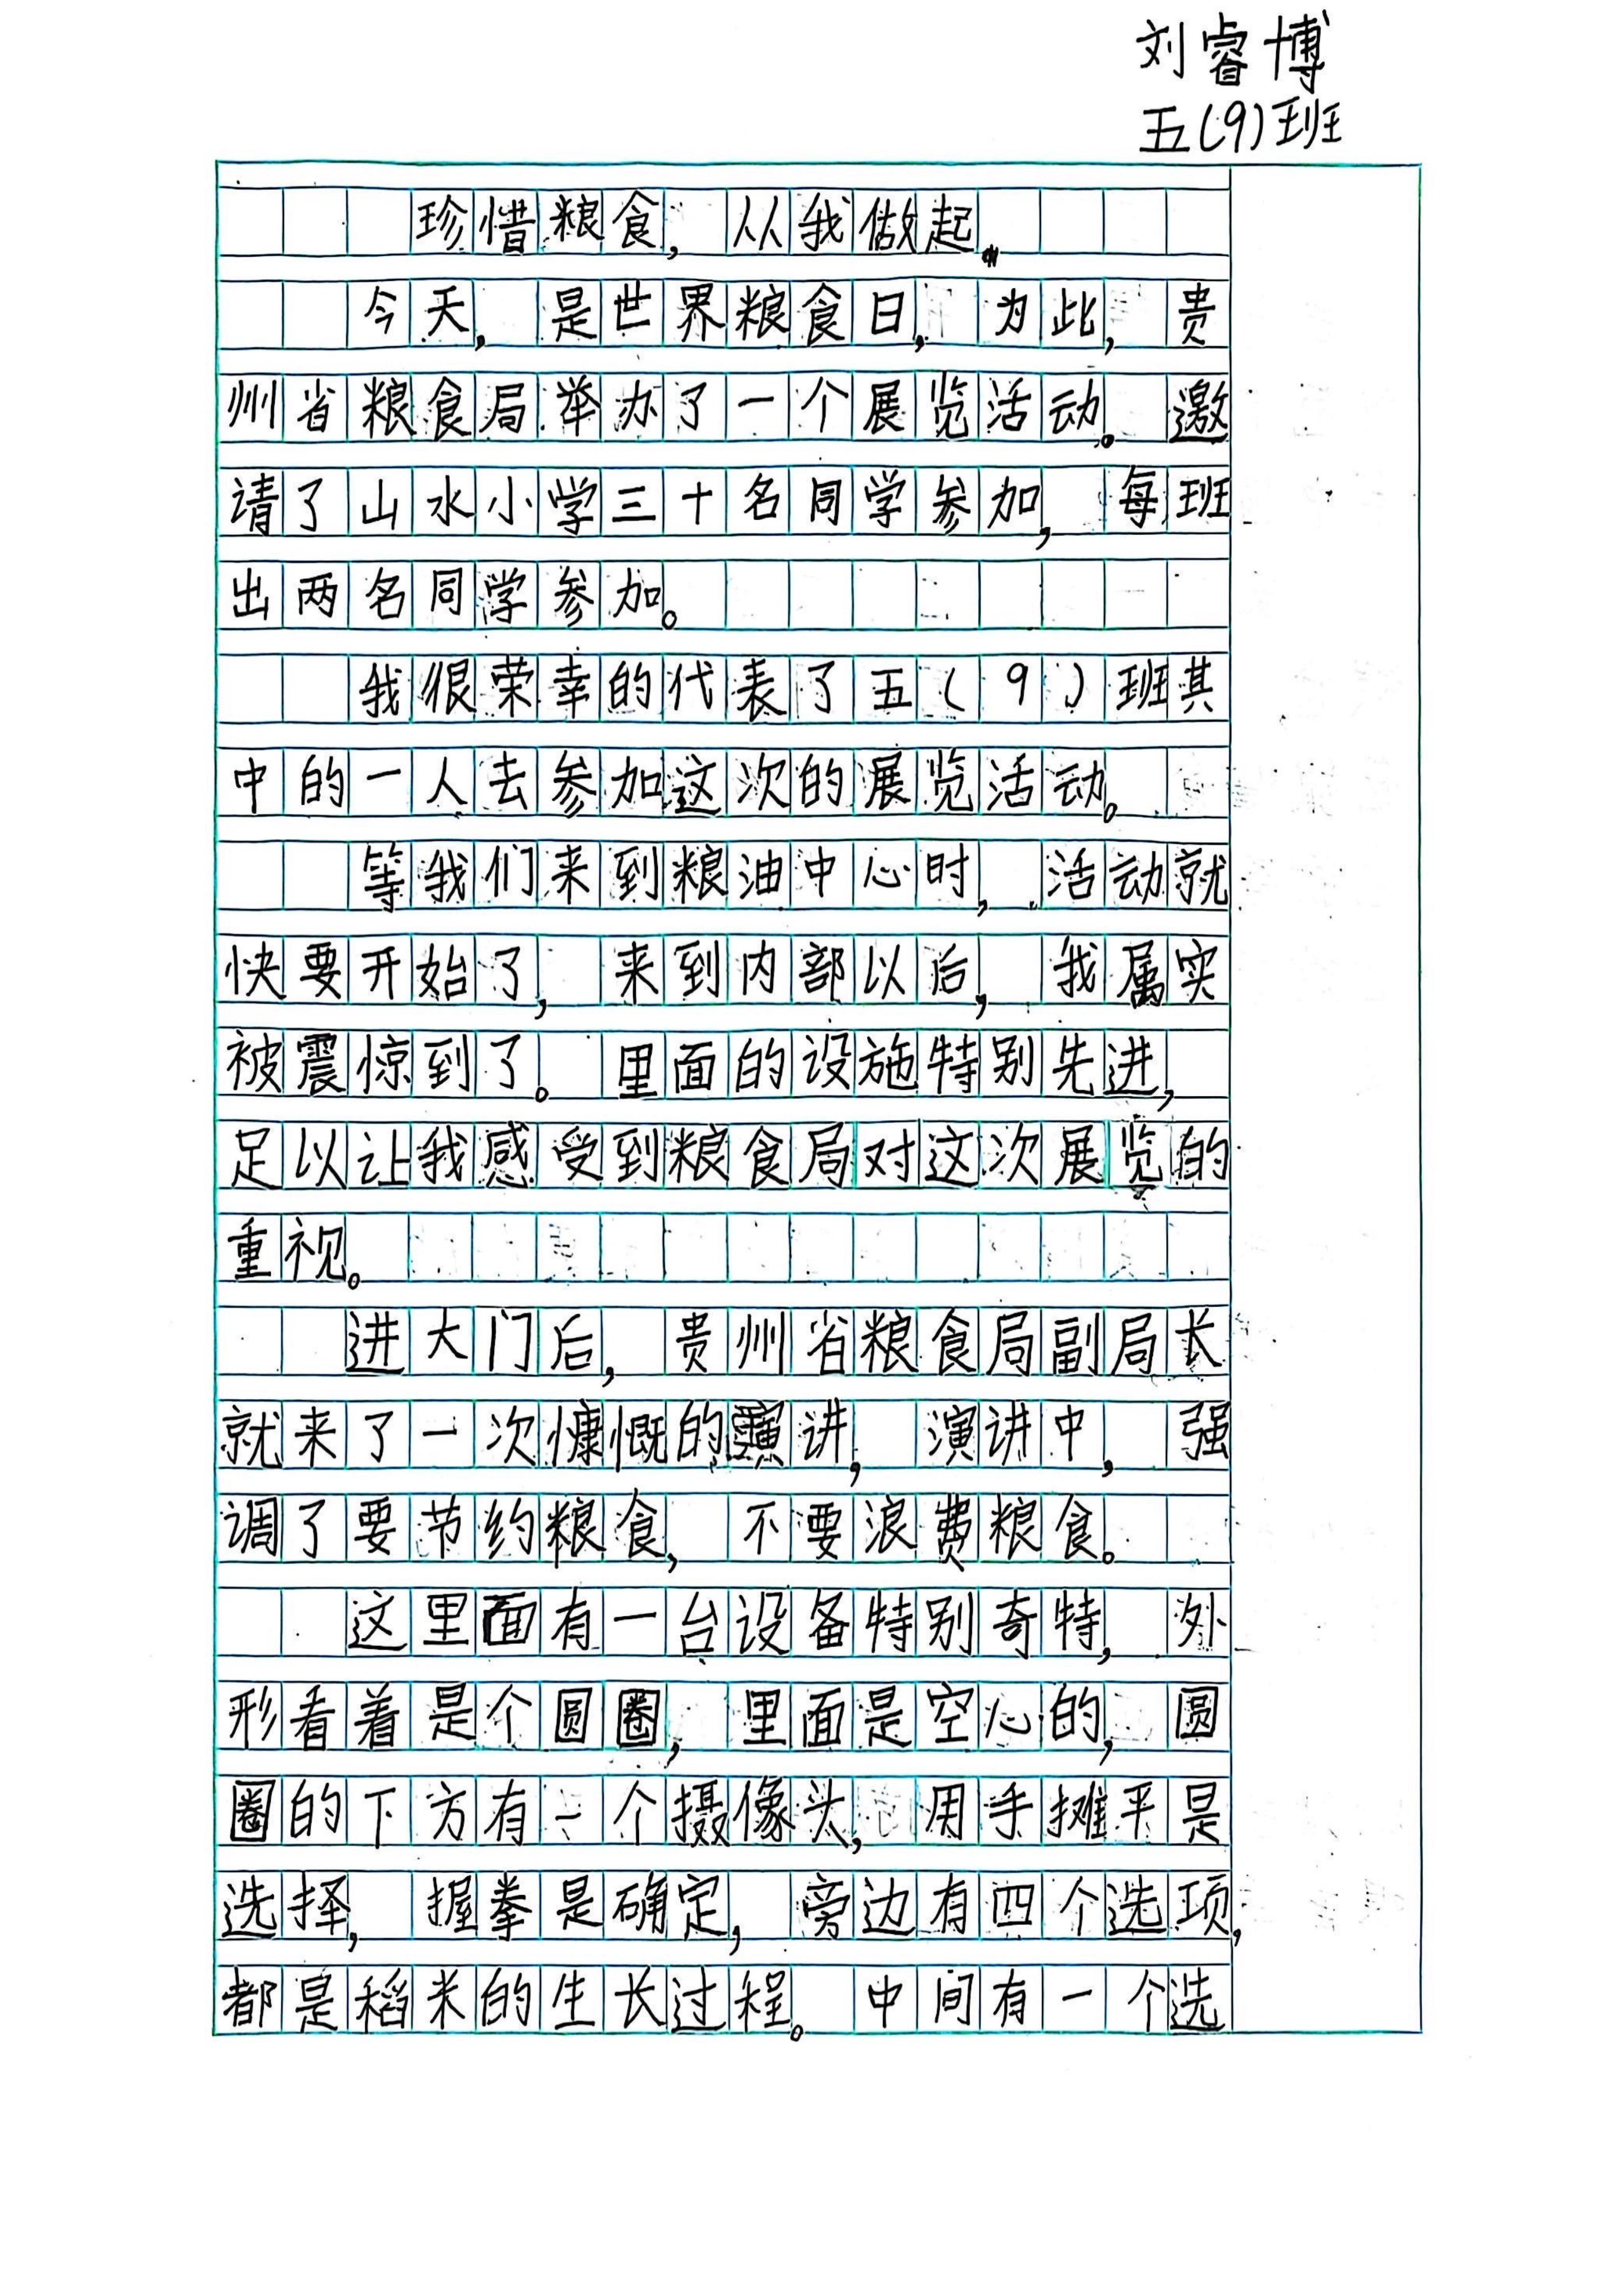 刘睿博
五(9)班
珍惜粮食,从我做起。
今天,是世界粮食日,为此,贵
州省粮食局举办了一个展览活动。邀
请了山水小学三十名同学参加,每班
出两名同学参加。
我很荣幸的代表了五(9)班其
中的一人去参加这次的展览活动。
等我们来到粮油中心时,活动就
快要开始了,来到内部以后,我属实
被震惊到了。里面的设施特别先进,
足以让我感受到粮食局对这次展览的
重视。
进大门后,贵州省粮食局副局长
就来了一次慷慨的演讲,演讲中,强
调了要节约粮食,不要浪费粮食。
这里面有一台设备特别奇特,外
形看着是个圆圈,里面是空心的,圆
圈的下方有一个摄像头,用手摊平是
选择,握拳是确定,旁边有四个选项,
都是稻米的生长过程。中间有一个选